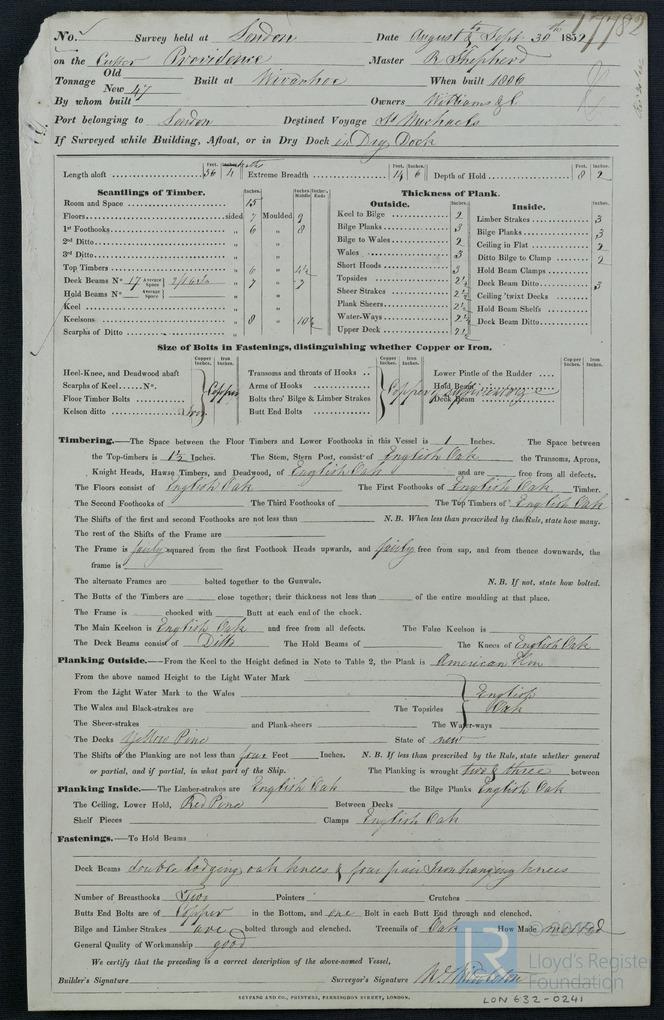 No. Survey held at London Date August & Sept 30th 1852 17782
on the Cutter Providence Master R Shepherd
Tonnage Old New 47 Built at Wivanhoe When built 1806
By whom built Owners Williams & C
Port belonging to London Destined Voyage St Michaels
If Surveyed while Building, Afloat, or in Dry Dock in Dry Dock
Length aloft Feet. 56 4 Extreme Breadth Feet. 14 Inches. 6 Depth of Hold Feet. 8 Inches. 2
Scantlings of Timber. Inches. Inches Middle Inches. Ends
Room and Space 15
Floors sided 7 Moulded 9
1st Foothooks „ 6 „ 8
2nd Ditto „ „
3rd Ditto „ „
Top Timbers „ 6 „ 4½
Deck Beams No 17 Average Space „ 7 „ 7
Hold Beams No Average Space „ „
Keel „ „
Keelsons „ 8 „ 10½
Scarphs of Ditto „
Thickness of Plank.
Outside. Inches.
Keel to Bilge 2
Bilge Planks 3
Bilge to Wales 2
Wales 3
Short Hoods 3
Topsides 2½
Sheer Strakes 2½
Plank Sheers 2½
Water-Ways 2½
Upper Deck 2½
Inside. Inches.
Limber Strakes 3
Bilge Planks 3
Ceiling in Flat 2
Ditto Bilge to Clamp 2
Hold Beam Clamps
Deck Beam Ditto 3
Ceiling 'twixt Decks
Hold Beam Shelfs
Deck Beam Ditto
Size of Bolts in Fastenings, distinguishing whether Copper or Iron.
Copper Inches. Iron Inches. Copper Inches. Iron Inches. Copper Inches. Iron Inches.
Heel-Knee, and Deadwood abaft Transoms and throats of Hooks Lower Pintle of the Rudder
Scarphs of Keel No. Copper Arms of Hooks Copper Hold Beam
Floor Timber Bolts Bolts thro' Bilge & Limber Strakes Deck Beam
Kelson ditto Iron Butt End Bolts
Timbering.—The Space between the Floor Timbers and Lower Foothooks in this Vessel is 1 Inches. The Space between
the Top-timbers is 1½ Inches. The Stem, Stern Post, consist of English Oak the Transoms, Aprons,
Knight Heads, Hawse Timbers, and Deadwood, of English Oak and are free from all defects.
The Floors consist of English Oak The First Foothooks of English Oak Timber.
The Second Foothooks of The Third Foothooks of The Top Timbers of English Oak
The Shifts of the first and second Foothooks are not less than N.B. When less than prescribed by the Rule, state how many.
The rest of the Shifts of the Frame are
The Frame is fairly squared from the first Foothook Heads upwards, and fairly free from sap, and from thence downwards, the
frame is
The alternate Frames are bolted together to the Gunwale. N.B. If not, state how bolted.
The Butts of the Timbers are close together; their thickness not less than of the entire moulding at that place.
The Frame is chocked with Butt at each end of the chock.
The Main Keelson is English Oak and free from all defects. The False Keelson is
The Deck Beams consist of Ditto The Hold Beams of The Knees of English Oak
Planking Outside.—From the Keel to the Height defined in Note to Table 2, the Plank is American Elm
From the above named Height to the Light Water Mark
From the Light Water Mark to the Wales English
The Wales and Black-strakes are The Topsides Oak
The Sheer-strakes and Plank-sheers The Water-ways
The Decks Yellow Pine State of new
The Shifts of the Planking are not less than four Feet Inches. N.B. If less than prescribed by the Rule, state whether general
or partial, and if partial, in what part of the Ship. The Planking is wrought two & three between
Planking Inside.—The Limber-strakes are English Oak the Bilge Planks English Oak
The Ceiling, Lower Hold, Red Pine Between Decks
Shelf Pieces Clamps English Oak
Fastenings.—To Hold Beams
Deck Beams double lodging oak knees & four pair Iron hanging knees
Number of Breasthooks Two Pointers Crutches
Butts End Bolts are of Copper in the Bottom, and one Bolt in each Butt End through and clenched.
Bilge and Limber Strakes are bolted through and clenched. Treenails of Oak How Made mooted
General Quality of Workmanship good
We certify that the preceding is a correct description of the above-named Vessel,
Builder's Signature Surveyor's Signature
SEYFANG AND CO., PRINTERS, FARRINGDON STREET, LONDON.
LON 632-0241
LR
Lloyd's Register
Foundation